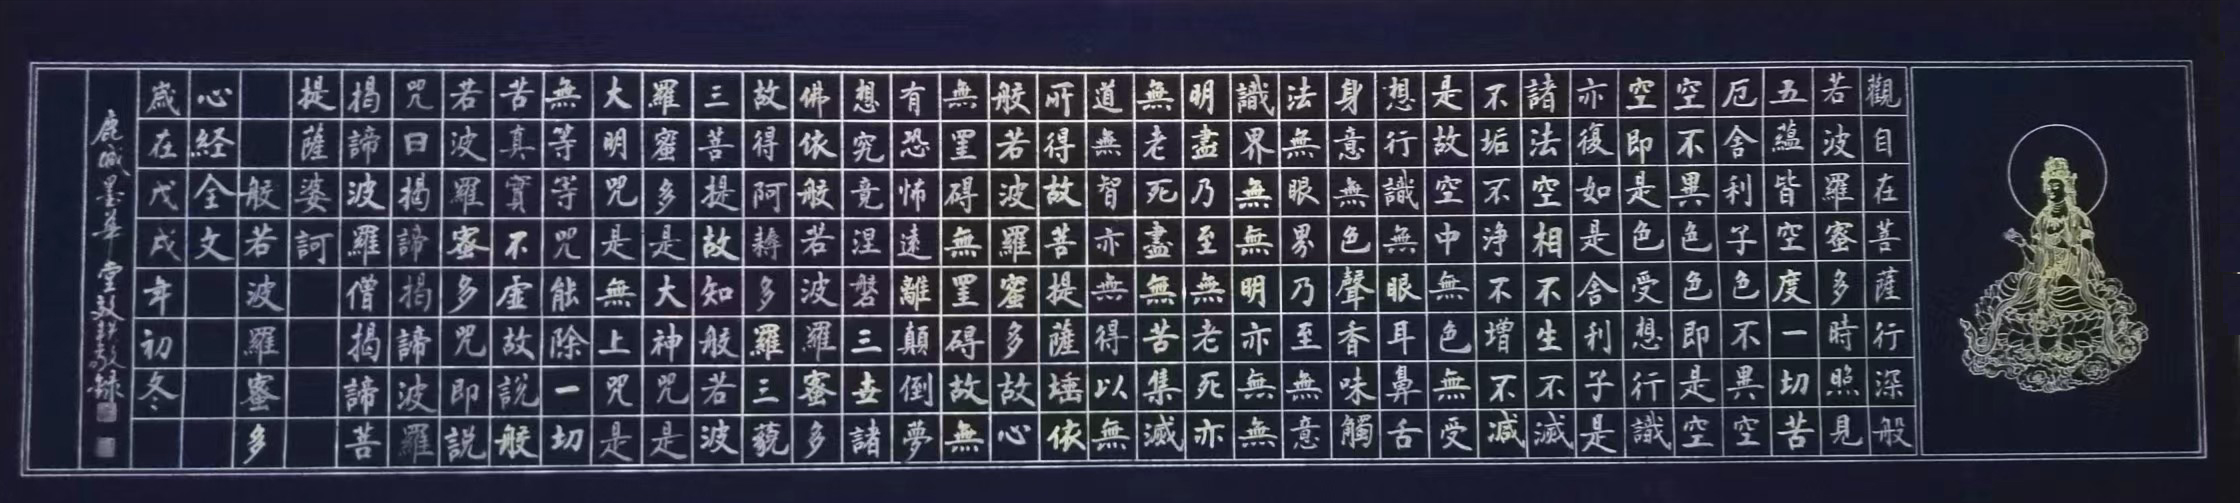 觀自在菩薩行深般
若波羅蜜多時照見
五蘊皆空度一切苦
厄舍利子色不異空
空不異色色即是空
空即是色受想行識
亦復如是舍利子是
諸法空相不生不滅
不垢不淨不增不減
是故空中無色無受
想行識無眼耳鼻舌
身意無色聲香味觸
法無眼界乃至無意
識界無無明亦無無
明盡乃至無老死亦
無老死盡無苦集滅
道無智亦無得以無
所得故菩提薩埵依
般若波羅蜜多故心
無罣碍無罣碍故無
有恐怖遠離顛倒夢
想究竟涅磐三世諸
佛依般若波羅蜜多
故得阿耨多羅三藐
三菩提故知般若波
羅蜜多是大神咒是
大明咒是無上咒是
無等等咒能除一切
苦真實不虛故說般
若波羅蜜多咒即說
咒曰揭諦揭諦波羅
揭諦波羅僧揭諦菩
提薩婆訶
般若波羅蜜多
心経全文
歲在戊戌年初冬
鹿城墨華堂敬錄